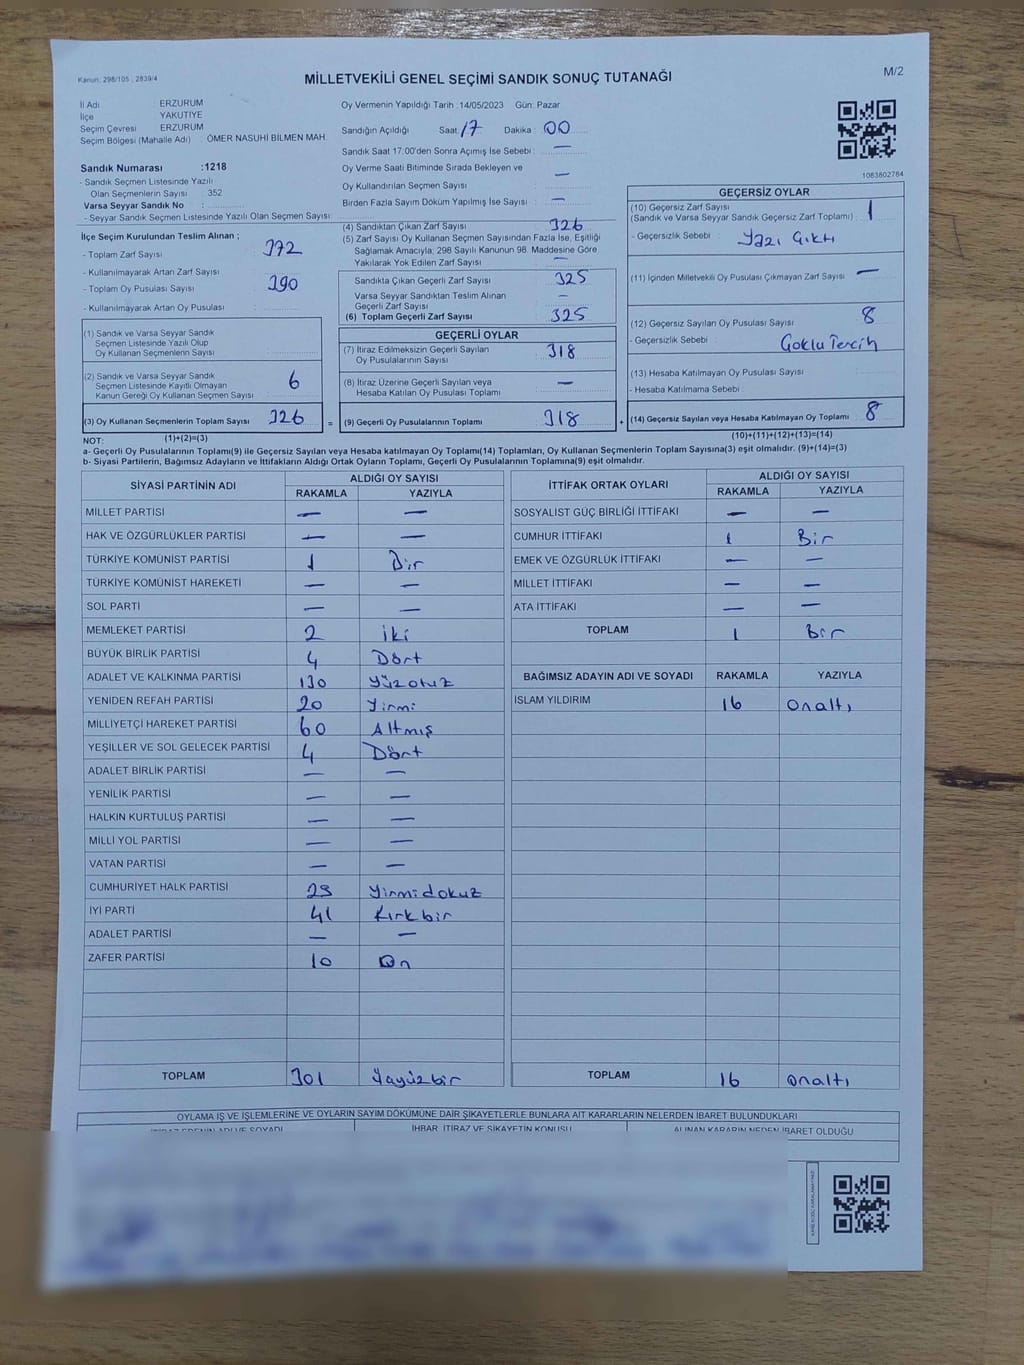 Kanun: 298/105 , 2839/4
MİLLETVEKİLİ GENEL SEÇİMİ SANDIK SONUÇ TUTANAĞI
M/2
İl Adı : ERZURUM
İlçe : YAKUTİYE
Seçim Çevresi : ERZURUM
Seçim Bölgesi (Mahalle Adı) : ÖMER NASUHİ BİLMEN MAH.
Sandık Numarası :1218
- Sandık Seçmen Listesinde Yazılı
Olan Seçmenlerin Sayısı : 352
Varsa Seyyar Sandık No :
- Seyyar Sandık Seçmen Listesinde Yazılı Olan Seçmen Sayısı:
Oy Vermenin Yapıldığı Tarih :14/05/2023 Gün: Pazar
Sandığın Açıldığı Saat: 17 Dakika : 00
Sandık Saat 17:00'den Sonra Açımış İse Sebebi : —
Oy Verme Saati Bitiminde Sırada Bekleyen ve
Oy Kullandırılan Seçmen Sayısı : —
Birden Fazla Sayım Döküm Yapılmış İse Sayısı : —
1083802784
İlçe Seçim Kurulundan Teslim Alınan ;
- Toplam Zarf Sayısı : 372
- Kullanılmayarak Artan Zarf Sayısı :
- Toplam Oy Pusulası Sayısı : 390
- Kullanılmayarak Artan Oy Pusulası :
(1) Sandık ve Varsa Seyyar Sandık
Seçmen Listesinde Yazılı Olup
Oy Kullanan Seçmenlerin Sayısı :
(2) Sandık ve Varsa Seyyar Sandık
Seçmen Listesinde Kayıtlı Olmayan
Kanun Gereği Oy Kullanan Seçmen Sayısı : 6
(3) Oy Kullanan Seçmenlerin Toplam Sayısı : 326
(4) Sandıktan Çıkan Zarf Sayısı : 326
(5) Zarf Sayısı Oy Kullanan Seçmen Sayısından Fazla İse, Eşitliği
Sağlamak Amacıyla; 298 Sayılı Kanunun 98. Maddesine Göre
Yakılarak Yok Edilen Zarf Sayısı : —
Sandıkta Çıkan Geçerli Zarf Sayısı : 325
Varsa Seyyar Sandıktan Teslim Alınan
Geçerli Zarf Sayısı : —
(6) Toplam Geçerli Zarf Sayısı : 325
GEÇERLİ OYLAR
(7) İtiraz Edilmeksizin Geçerli Sayılan
Oy Pusulalarının Sayısı : 318
(8) İtiraz Üzerine Geçerli Sayılan veya
Hesaba Katılan Oy Pusulası Toplamı : —
= (9) Geçerli Oy Pusulalarının Toplamı : 318
GEÇERSİZ OYLAR
(10) Geçersiz Zarf Sayısı
(Sandık ve Varsa Seyyar Sandık Geçersiz Zarf Toplamı) : 1
- Geçersizlik Sebebi : Yazı Çıktı
(11) İçinden Milletvekili Oy Pusulası Çıkmayan Zarf Sayısı : —
(12) Geçersiz Sayılan Oy Pusulası Sayısı : 8
- Geçersizlik Sebebi : Çoklu Tercih
(13) Hesaba Katılmayan Oy Pusulası Sayısı :
- Hesaba Katılmama Sebebi :
+ (14) Geçersiz Sayılan veya Hesaba Katılmayan Oy Toplamı : 8
NOT: (1)+(2)=(3) (10)+(11)+(12)+(13)=(14)
a- Geçerli Oy Pusulalarının Toplamı(9) ile Geçersiz Sayılan veya Hesaba Katılmayan Oy Toplamı(14) Toplamları, Oy Kullanan Seçmenlerin Toplam Sayısına(3) eşit olmalıdır. (9)+(14)=(3)
b- Siyasi Partilerin, Bağımsız Adayların ve İttifakların Aldığı Ortak Oyların Toplamı, Geçerli Oy Pusulalarının Toplamına(9) eşit olmalıdır.
SİYASİ PARTİNİN ADI ALDIĞI OY SAYISI
RAKAMLA YAZIYLA
MİLLET PARTİSİ — —
HAK VE ÖZGÜRLÜKLER PARTİSİ — —
TÜRKİYE KOMÜNİST PARTİSİ 1 Bir
TÜRKİYE KOMÜNİST HAREKETİ — —
SOL PARTİ — —
MEMLEKET PARTİSİ 2 İki
BÜYÜK BİRLİK PARTİSİ 4 Dört
ADALET VE KALKINMA PARTİSİ 130 Yüzotuz
YENİDEN REFAH PARTİSİ 20 Yirmi
MİLLİYETÇİ HAREKET PARTİSİ 60 Altmış
YEŞİLLER VE SOL GELECEK PARTİSİ 4 Dört
ADALET BİRLİK PARTİSİ — —
YENİLİK PARTİSİ — —
HALKIN KURTULUŞ PARTİSİ — —
MİLLİ YOL PARTİSİ — —
VATAN PARTİSİ — —
CUMHURİYET HALK PARTİSİ 29 Yirmidokuz
İYİ PARTİ 41 Kırkbir
ADALET PARTİSİ — —
ZAFER PARTİSİ 10 On
TOPLAM 301 Üçyüzbir
İTTİFAK ORTAK OYLARI ALDIĞI OY SAYISI
RAKAMLA YAZIYLA
SOSYALİST GÜÇ BİRLİĞİ İTTİFAKI — —
CUMHUR İTTİFAKI 1 Bir
EMEK VE ÖZGÜRLÜK İTTİFAKI — —
MİLLET İTTİFAKI — —
ATA İTTİFAKI — —
TOPLAM 1 Bir
BAĞIMSIZ ADAYIN ADI VE SOYADI RAKAMLA YAZIYLA
İSLAM YILDIRIM 16 Onaltı
TOPLAM 16 Onaltı
OYLAMA İŞ VE İŞLEMLERİNE VE OYLARIN SAYIM DÖKÜMÜNE DAİR ŞİKAYETLERLE BUNLARA AİT KARARLARIN NELERDEN İBARET BULUNDUKLARI
İTİRAZ EDENİN ADI VE SOYADI İHBAR, İTİRAZ VE ŞİKAYETİN KONUSU ALINAN KARARIN NEDEN İBARET OLDUĞU